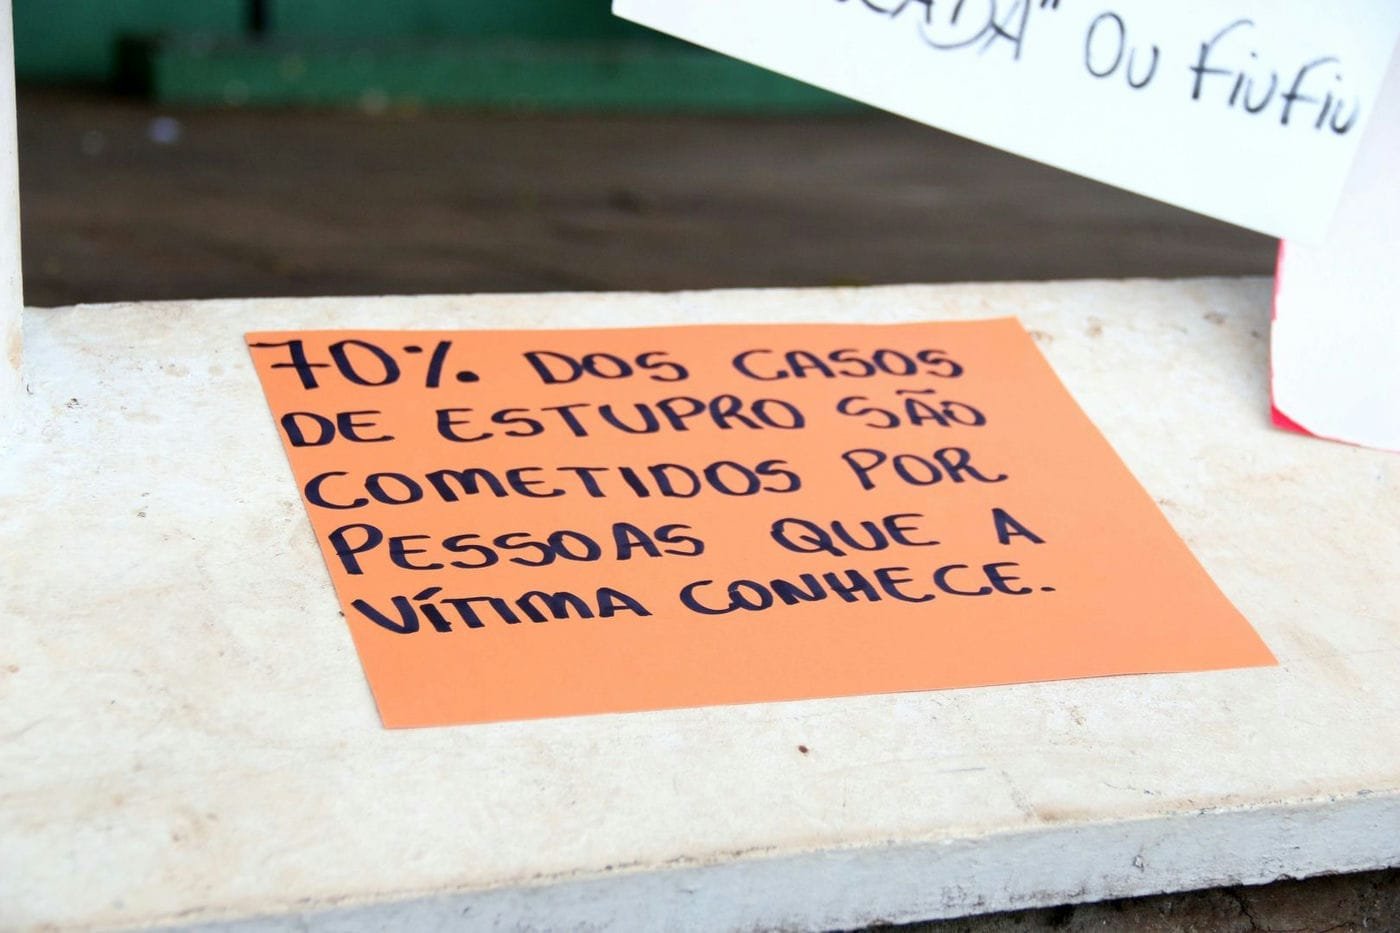 OU FIUFIU
70% DOS CASOS
DE ESTUPRO SÃO
COMETIDOS POR
PESSOAS QUE A
VÍTIMA CONHECE.